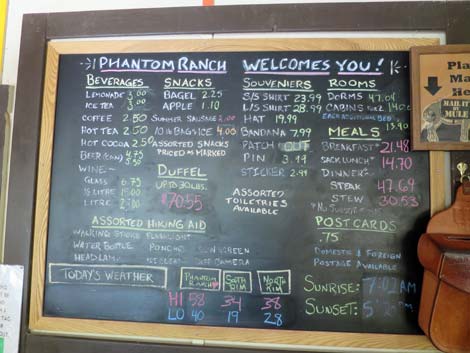 PHANTOM RANCH WELCOMES YOU!
BEVERAGES
LEMONADE 3.00
ICE TEA 3.00
COFFEE 2.50
HOT TEA 2.50
HOT COCOA 2.50
BEER (COW) 4.75
5.50
WINE~
GLASS 6.75
½ LITRE
LITRE
SNACKS
BAGEL 2.25
APPLE 1.10
SUMMER SAUSAGE
10 lb BAG ICE 4.00
ASSORTED SNACKS
PRICED AS MARKED
DUFFEL
UP TO 30 LBS.
$70.55
SOUVENIERS
S/S SHIRT 23.99
L/S SHIRT 28.99
HAT 19.99
BANDANA 7.99
PATCH OUT
PIN 3.99
STICKER 2.99
ASSORTED
TOILETRIES
AVAILABLE
ROOMS
DORMS 47.04
CABINS
EACH ADDITIONAL BED 13.40
MEALS
BREAKFAST 21.48
SACK LUNCH 14.70
DINNER~
STEAK 47.69
STEW 30.53
POSTCARDS
.75
DOMESTIC & FOREIGN
POSTAGE AVAILABLE
ASSORTED HIKING AID
WALKING STICKS FLASHLIGHT
WATER BOTTLE PONCHO SUN SCREEN
HEADLAMP CAMERA
TODAY'S WEATHER
PHANTOM RANCH
SOUTH RIM
NORTH RIM
HI 58 34 38
LO 40 19 28
SUNRISE: 7:02 AM
SUNSET:
MAIL
MULE